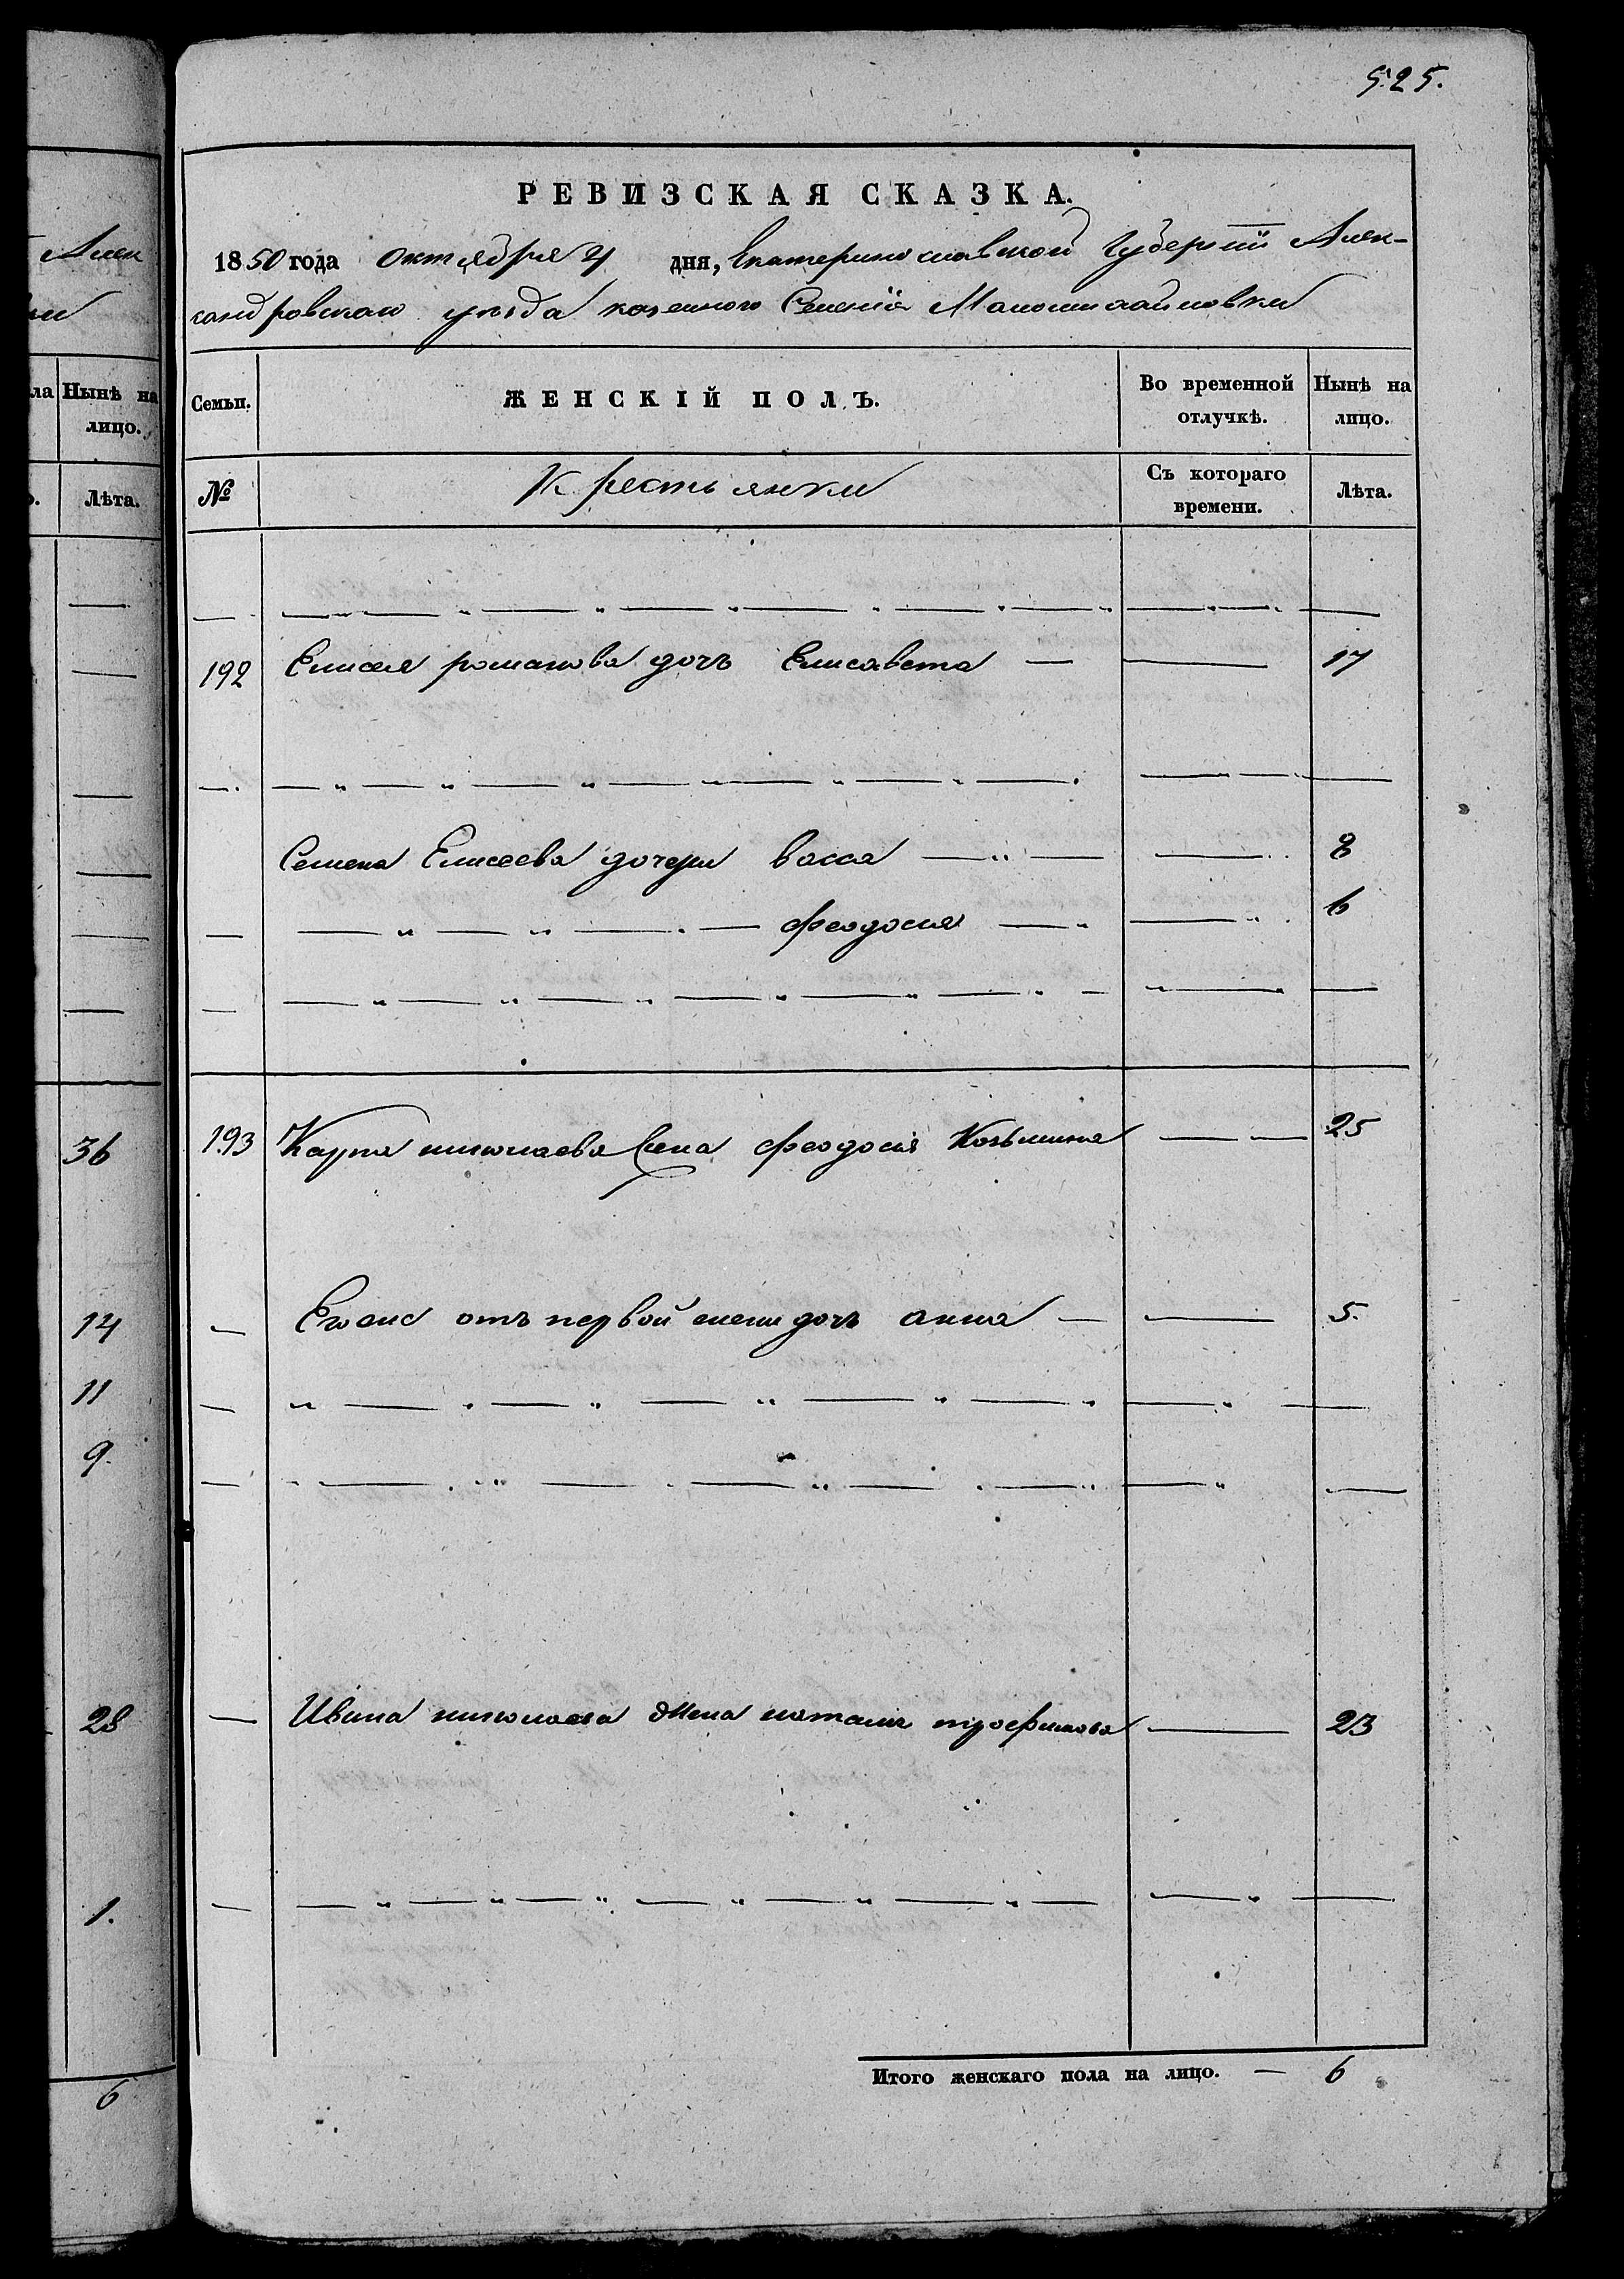 525.
РЕВИЗСКАЯ СКАЗКА.
1850 года Октября 4 дня, Екатеринославской Губерніи Алек-
сандровскаго уѣзда казенного Селенія Маломихайловки
Семьи.
ЖЕНСКІЙ ПОЛЪ.
Во временной отлучкѣ.
Нынѣ на лицо.
№
Крестьянки
Съ котораго времени.
Лѣта.
192 Елисея романова дочь Елисавета — — 17
Семена Елисеева дочери васса — — 8
феодосия — — 6
193 Карпа николаева жена феодосія Козьмина — — 25
— Егоже отъ первой жены дочь анна — — 5.
— Ивана николаева жена наталия трофимова — 23
Итого женскаго пола на лицо. — 6
Алек
ла
Нынѣ на лицо.
Лѣта.
36
14
11
9.
28
1.
6